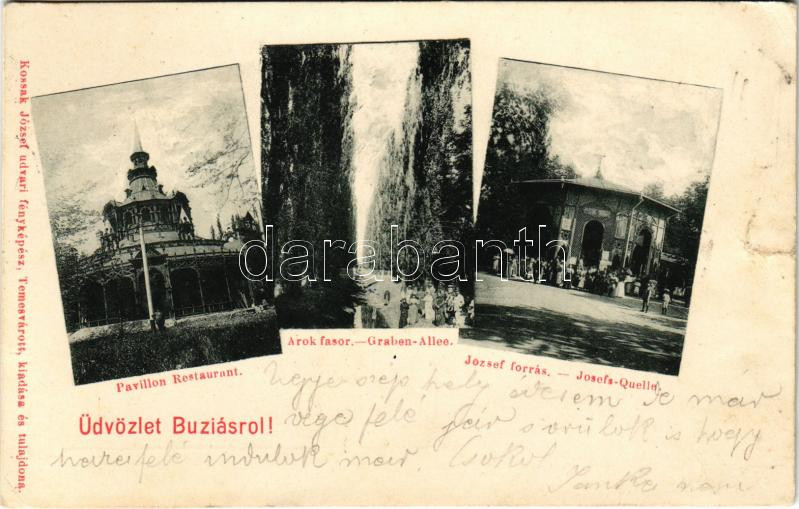 Kossak József udvari fényképész, Temesvárott, kiadása és tulajdona.
darabanth
Pavillon Restaurant.
Arok fasor.—Graben-Allee.
József forrás. — Josefs-Quelle.
Üdvözlet Buziásról!
Ugye szép hely édesem de már
vége felé jár s örülök is hogy
hazafelé indulok már. Csókol
Janka